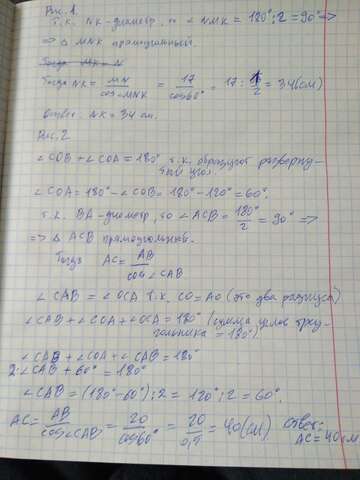 Рис. 1.
Т.к. NK-диаметр, то ∠NMK = 180°:2 = 90° =>
=> Δ MNK прямоугольный.
Тогда NK = MN/cos∠MNK = 17/cos60° = 17 : 1/2 = 34(см)
Ответ: NK = 34 см.
Рис. 2
∠COB + ∠COA = 180° т.к. образуют разверну-
тый угол.
∠COA = 180° - ∠COB = 180° - 120° = 60°.
т.к. BA-диаметр, то ∠ACB = 180°/2 = 90° =>
=> Δ ACB прямоугольный.
Тогда AC = AB/cos∠CAB
∠CAB = ∠OCA т.к. CO=AO (это два радиуса)
∠CAB + ∠COA + ∠OCA = 180° (сумма углов треу-
гольника = 180°)
∠CAB + ∠COA + ∠CAB = 180°
2·∠CAB + 60° = 180°
∠CAB = (180° - 60°) : 2 = 120° : 2 = 60°.
AC = AB/cos∠CAB = 20/cos60° = 20/0,5 = 40(см)
Ответ:
AC = 40см